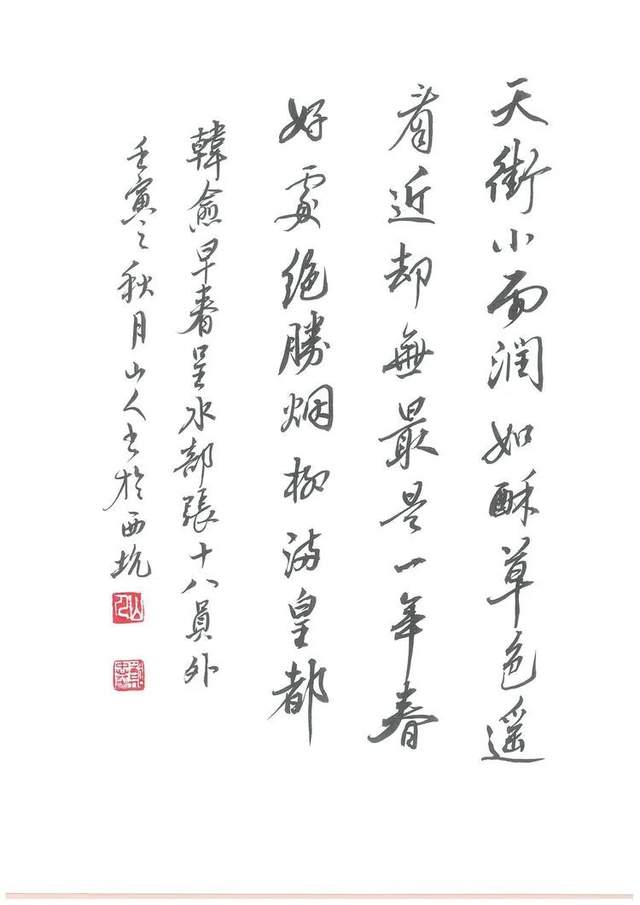 天街小雨潤如酥草色遥
看近却無最是一年春
好處絶勝烟柳满皇都
韓愈早春呈水部張十八員外
壬寅之秋月山人书於西坑